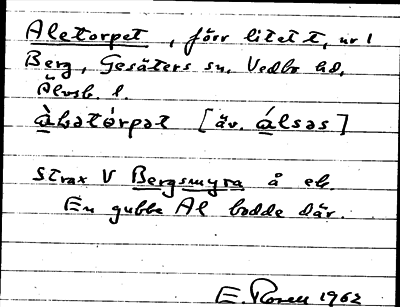 Aletorpet, förr litet t, nr 1
Berg, Gesäters sn, Vedbo hd,
Älvsb. l.
àlₔtórpₔt [äv. álsₔs]
Strax V Bergsmyra å ek.
En gubbe Al bodde där.
E. Rosell 1962